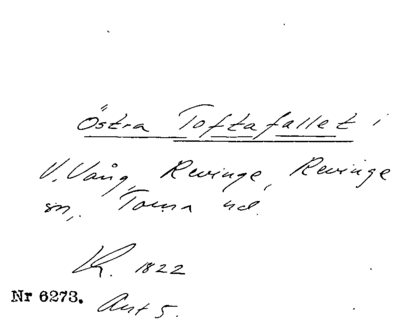 Östra Toftafallet i
V. Vång, Revinge, Revinge
sn, Torna hd.
Lk. 1822
Nr 6273. Akt 5.